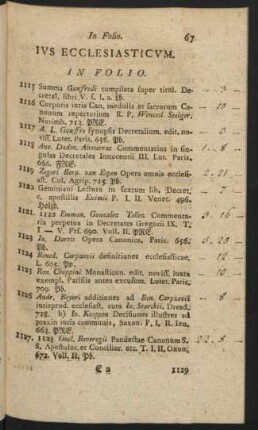 In Folio. 67
IVS ECCLESIASTICVM.
IN FOLIO.
1115 Summa Gaufredi compilata super titul. De- — 3
cretal. libri V. f. l. a. Ld.
1116 Corporis iuris Can. medulla et sacrorum Ca- — 10
nonum repertorium R. P. Wenzel. Steiger.
Norimb. 711. PRE.
1117 A. L. Gouffre synopsis Decretalium. edit. no- — 3
viss. Luter. Paris. 656. Pb.
1118 Ant. Dadin. Alteserrae Commentarius in sin- 1. 8
gulas Decretales Innocentii III. Lut. Paris.
666. FRE.
1119 Zegeri Bern. van Espen Opera omnia eccles- 2. 21
iast. Col. Agrip. 715. Pb.
1120 Geminiani Lectura in sextum lib. Decret.
c. apostillis Eximii P. I. II. Venet. 496.
Holzb.
1121. 1122 Emman. Gonzalez Tellez Commenta- 3. 16
ria perpetua in Decretales Gregorii IX. T.
I — V. Frf. 690. Voll. II. PRE.
1123 Io. Dartis Opera Canonica. Paris. 656. 5. 20
Pb.
1124 Bened. Carpzovii definitiones ecclesiasticae. — 12
L. 665. Pb.
1125 Ren. Choppini Monasticon. edit. noviss. iuxta — 10
exempl. Parisiis antea excusum. Luter. Paris.
709. Pb.
1126 Andr. Beyeri additiones ad Ben. Carpzovii — 8
iurisprud. ecclesiast. cura Io. Starckii. Dresd.
718. b) Io. Koeppen Decisiones illustres ad
praxin iuris communis, Saxon. P. I. II. Ien.
663. PRE.
1127. 1128 Guil. Beveregii Pandectae Canonum S. 22. 8
S. Apostolor. et Conciliar. etc. T. I. II. Oxon.
672. Voll. II. Pb.
E 2 1129